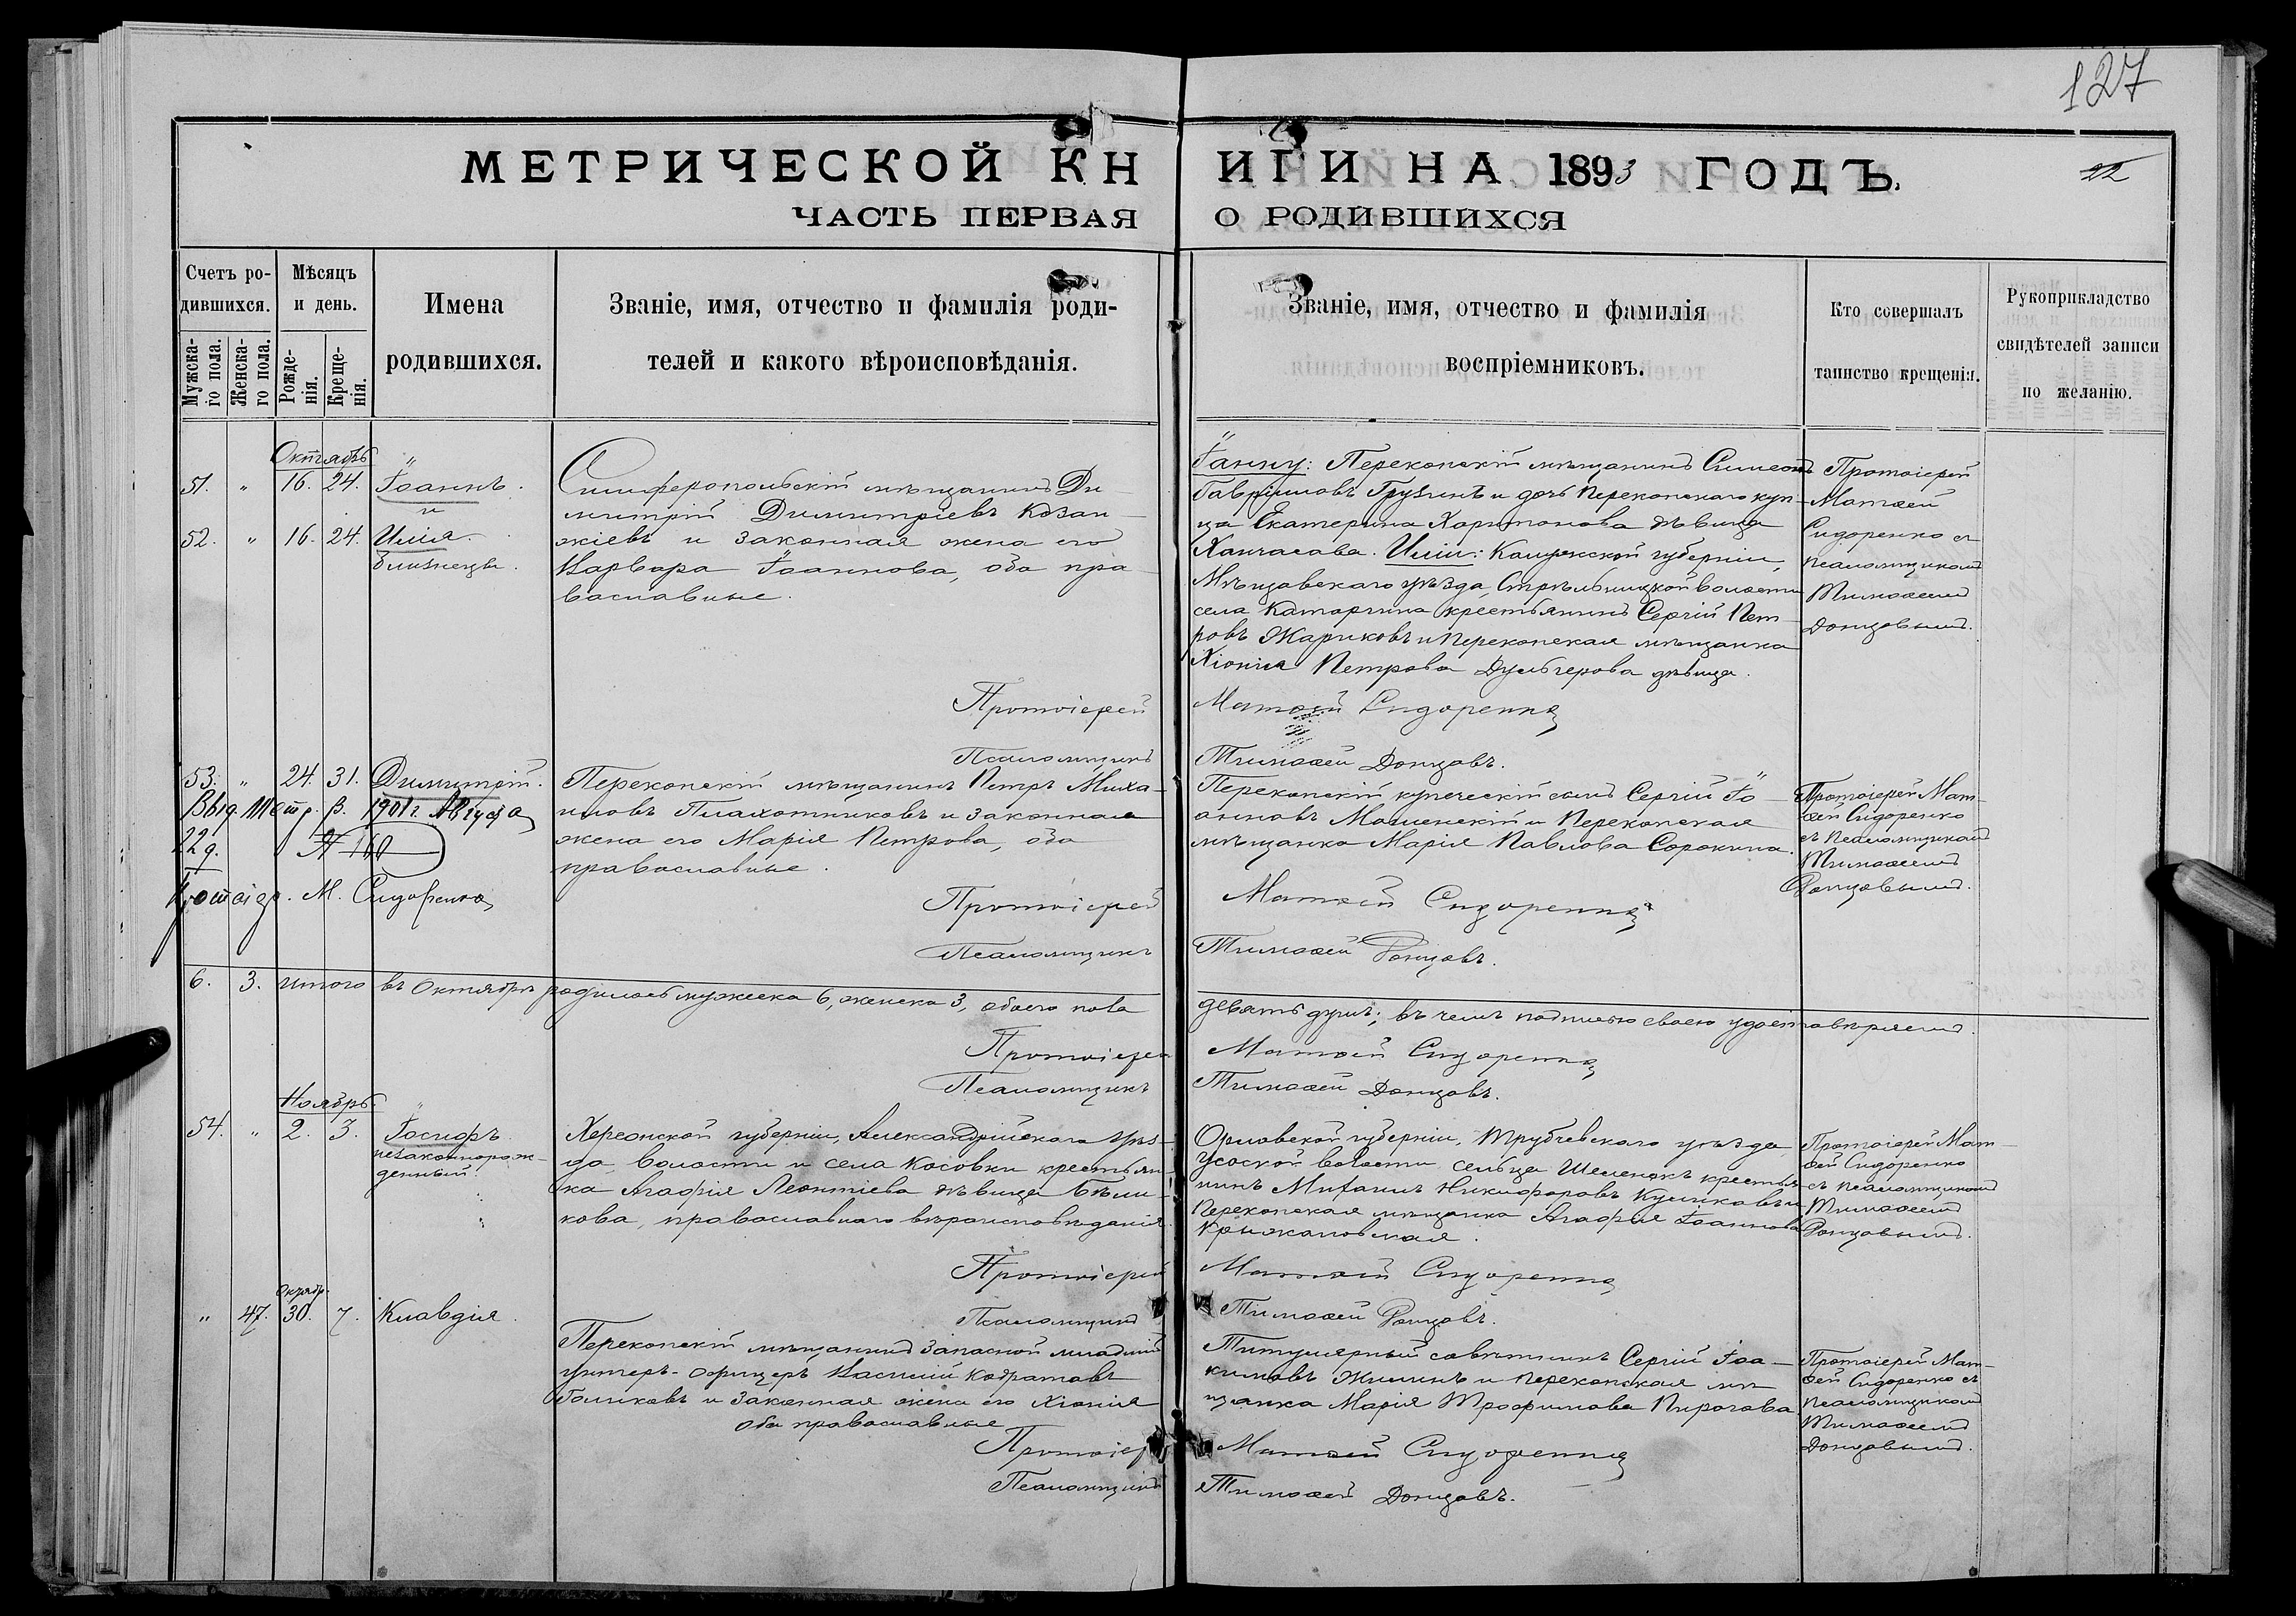 127
МЕТРИЧЕСКОЙ КНИГИ НА 1893 ГОДЪ.
22
ЧАСТЬ ПЕРВАЯ О РОДИВШИХСЯ
Счетъ родившихся.
Мужскаго пола.
Женскаго пола.
Мѣсяцъ и день.
Рожденія.
Крещенія.
Имена родившихся.
Званіе, имя, отчество и фамилія родителей и какого вѣроисповѣданія.
Званіе, имя, отчество и фамилія воспріемниковъ.
Кто совершалъ таинство крещенія.
Рукоприкладство свидѣтелей записи по желанію.
Октябрь
51. " 16. 24. Іоаннъ
и
52. " 16. 24. Илія
близнецы.
Симферопольскій мѣщанинъ Ди-
митрій Димитріевъ Козан-
жіевъ и законная жена его
Варвара Іоаннова, оба пра-
вославные.
Іанну: Перекопскій мѣщанинъ Симеонъ
Гавріиловъ Грузинъ и дочь Перекопскаго куп-
ца Екатерина Харитонова дѣвица
Ханчасова. Иліи: Калужской губерніи,
Мѣщовскаго уѣзда, Стрѣльницкой волости
села Катаргина крестьянинъ Сергій Пет-
ровъ Жариковъ и Перекопская мѣщанка
Хіонія Петрова Дульгерова дѣвица.
Протоіерей
Матѳей
Сидоренко съ
псаломщикомъ
Тимоѳеемъ
Донцовымъ.
Протоіерей Матѳей Сидоренко
Псаломщикъ Тимоѳей Донцовъ.
53. " 24. 31. Димитрій.
Выд. Метр. в. 1901 г. Августа
22 д. № 160
Протоіер. М. Сидоренко
Перекопскій мѣщанинъ Петръ Миха-
иловъ Плахотниковъ и законная
жена его Марія Петрова, оба
православные.
Перекопскій купеческій сынъ Сергій Іо-
анновъ Мошенскій и Перекопская
мѣщанка Марія Павлова Сорокина.
Протоіерей Мат-
ѳей Сидоренко
съ псаломщикомъ
Тимоѳеемъ
Донцовымъ.
Протоіерей Матѳей Сидоренко
Псаломщикъ Тимоѳей Донцовъ.
6. 3. итого въ Октябрѣ родилось мужеска 6, женска 3, обоего пола девять душъ; въ чемъ подписью своею удостовѣряемъ.
Протоіерей Матѳей Сидоренко
Псаломщикъ Тимоѳей Донцовъ.
Ноябрь.
54. " 2. 3. Іосифъ
незаконнорож-
денный.
Херсонской губерніи, Александрійскаго уѣз-
да, волости и села Косовки крестьян-
ка Агафія Леонтіева дѣвица Бѣли-
кова, православнаго вѣроисповѣданія.
Орловской губерніи, Трубчевскаго уѣзда,
Усоской волости сельца Шеменокъ крестья-
нинъ Михаилъ Никифоровъ Куликовъ и
Перекопская мѣщанка Агафія Іоаннова
Крыжановская.
Протоіерей Мат-
ѳей Сидоренко
съ псаломщикомъ
Тимоѳеемъ
Донцовымъ.
Протоіерей Матѳей Сидоренко
Псаломщикъ Тимоѳей Донцовъ.
Октябр.
" 47. 30. 7. Клавдія.
Перекопскій мѣщанинъ запасной младшій
унтеръ-офицеръ Василій Кодратовъ
Голиковъ и законная жена его Хіонія
оба православные
Титулярный совѣтникъ Сергій Іоа-
кимовъ Жилинъ и перекопская мѣ-
щанка Марія Трофимова Пирогова
Протоіерей Мат-
ѳей Сидоренко съ
псаломщикомъ
Тимоѳеемъ
Донцовымъ.
Протоіерей Матѳей Сидоренко
Псаломщикъ Тимоѳей Донцовъ.